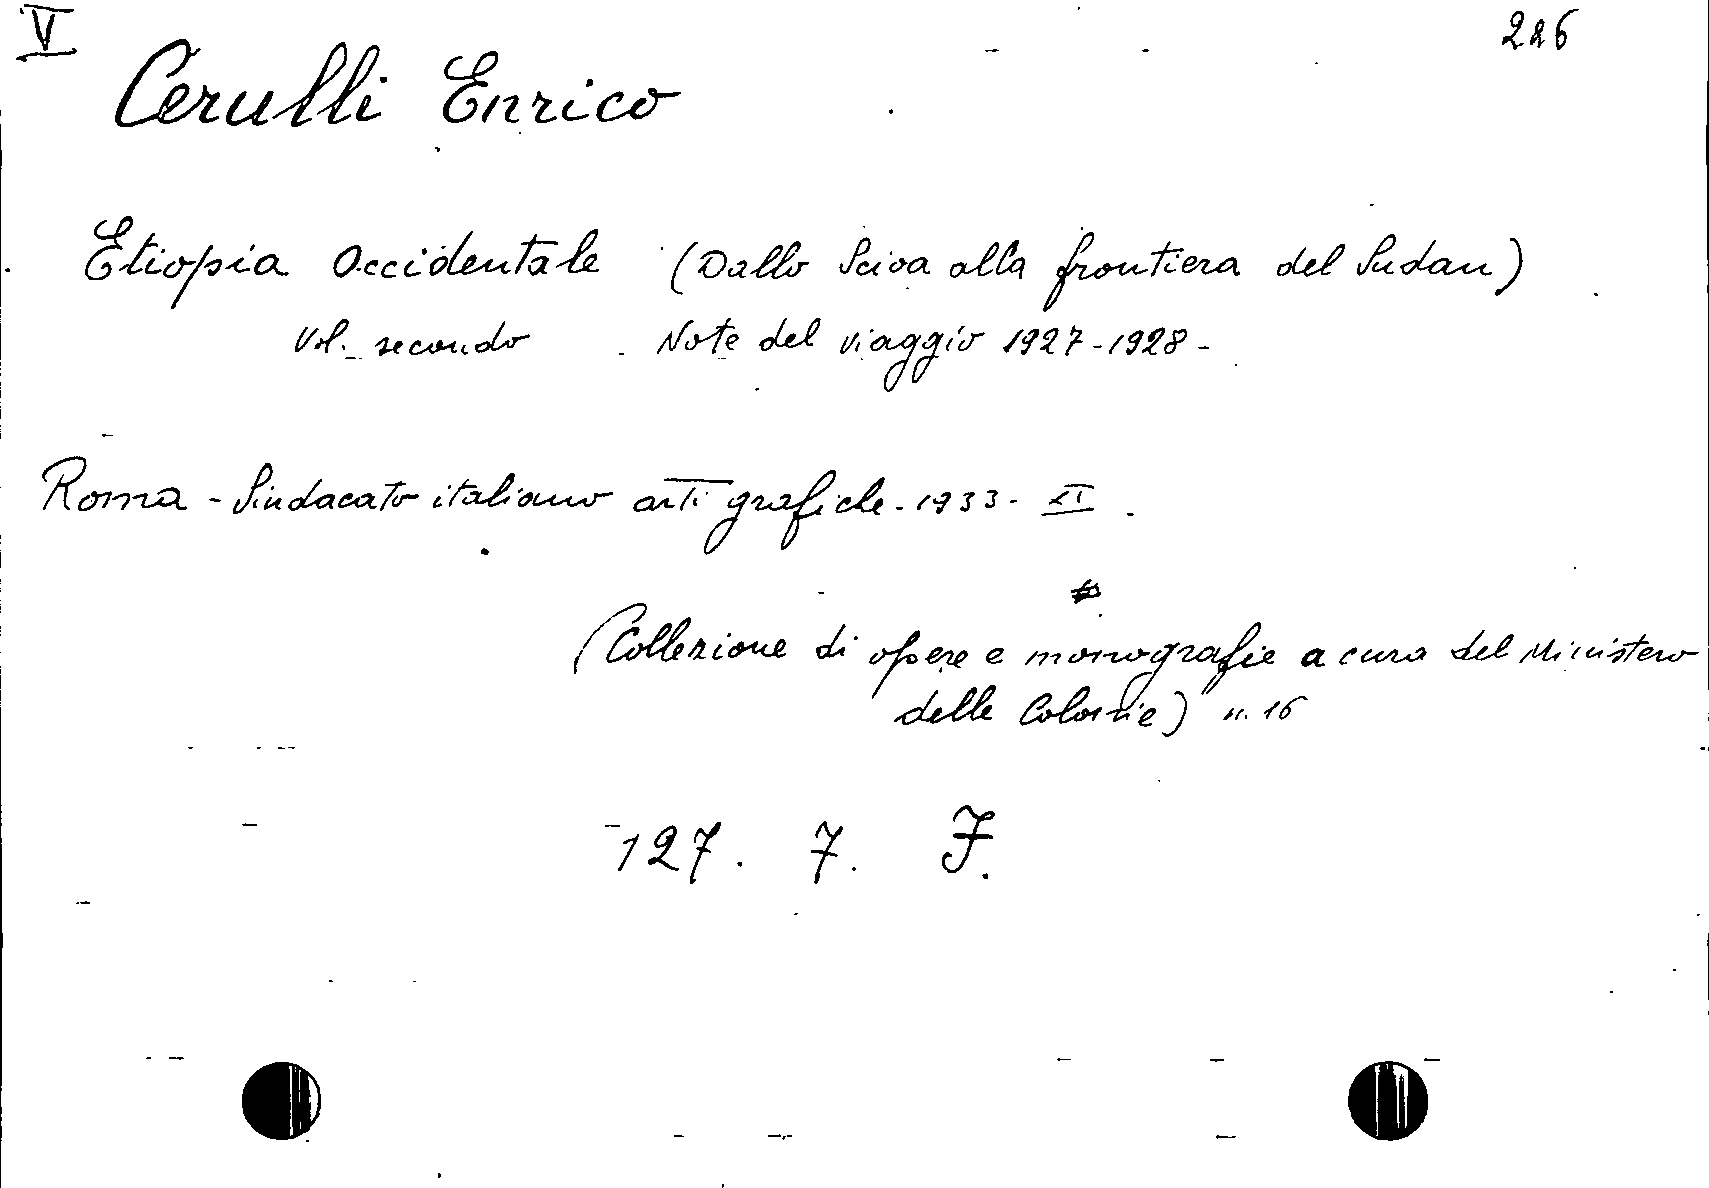 V
226
Cerulli Enrico
Etiopia Occidentale (Dallo Scioa alla frontiera del Sudan)
Vol. secondo Note del viaggio 1927-1928-
Roma - Sindacato italiano arti grafiche - 1933 - XI.
(Collezione di opere e monografie a cura del Ministero
delle Colonie) n. 16
127. 7. F.